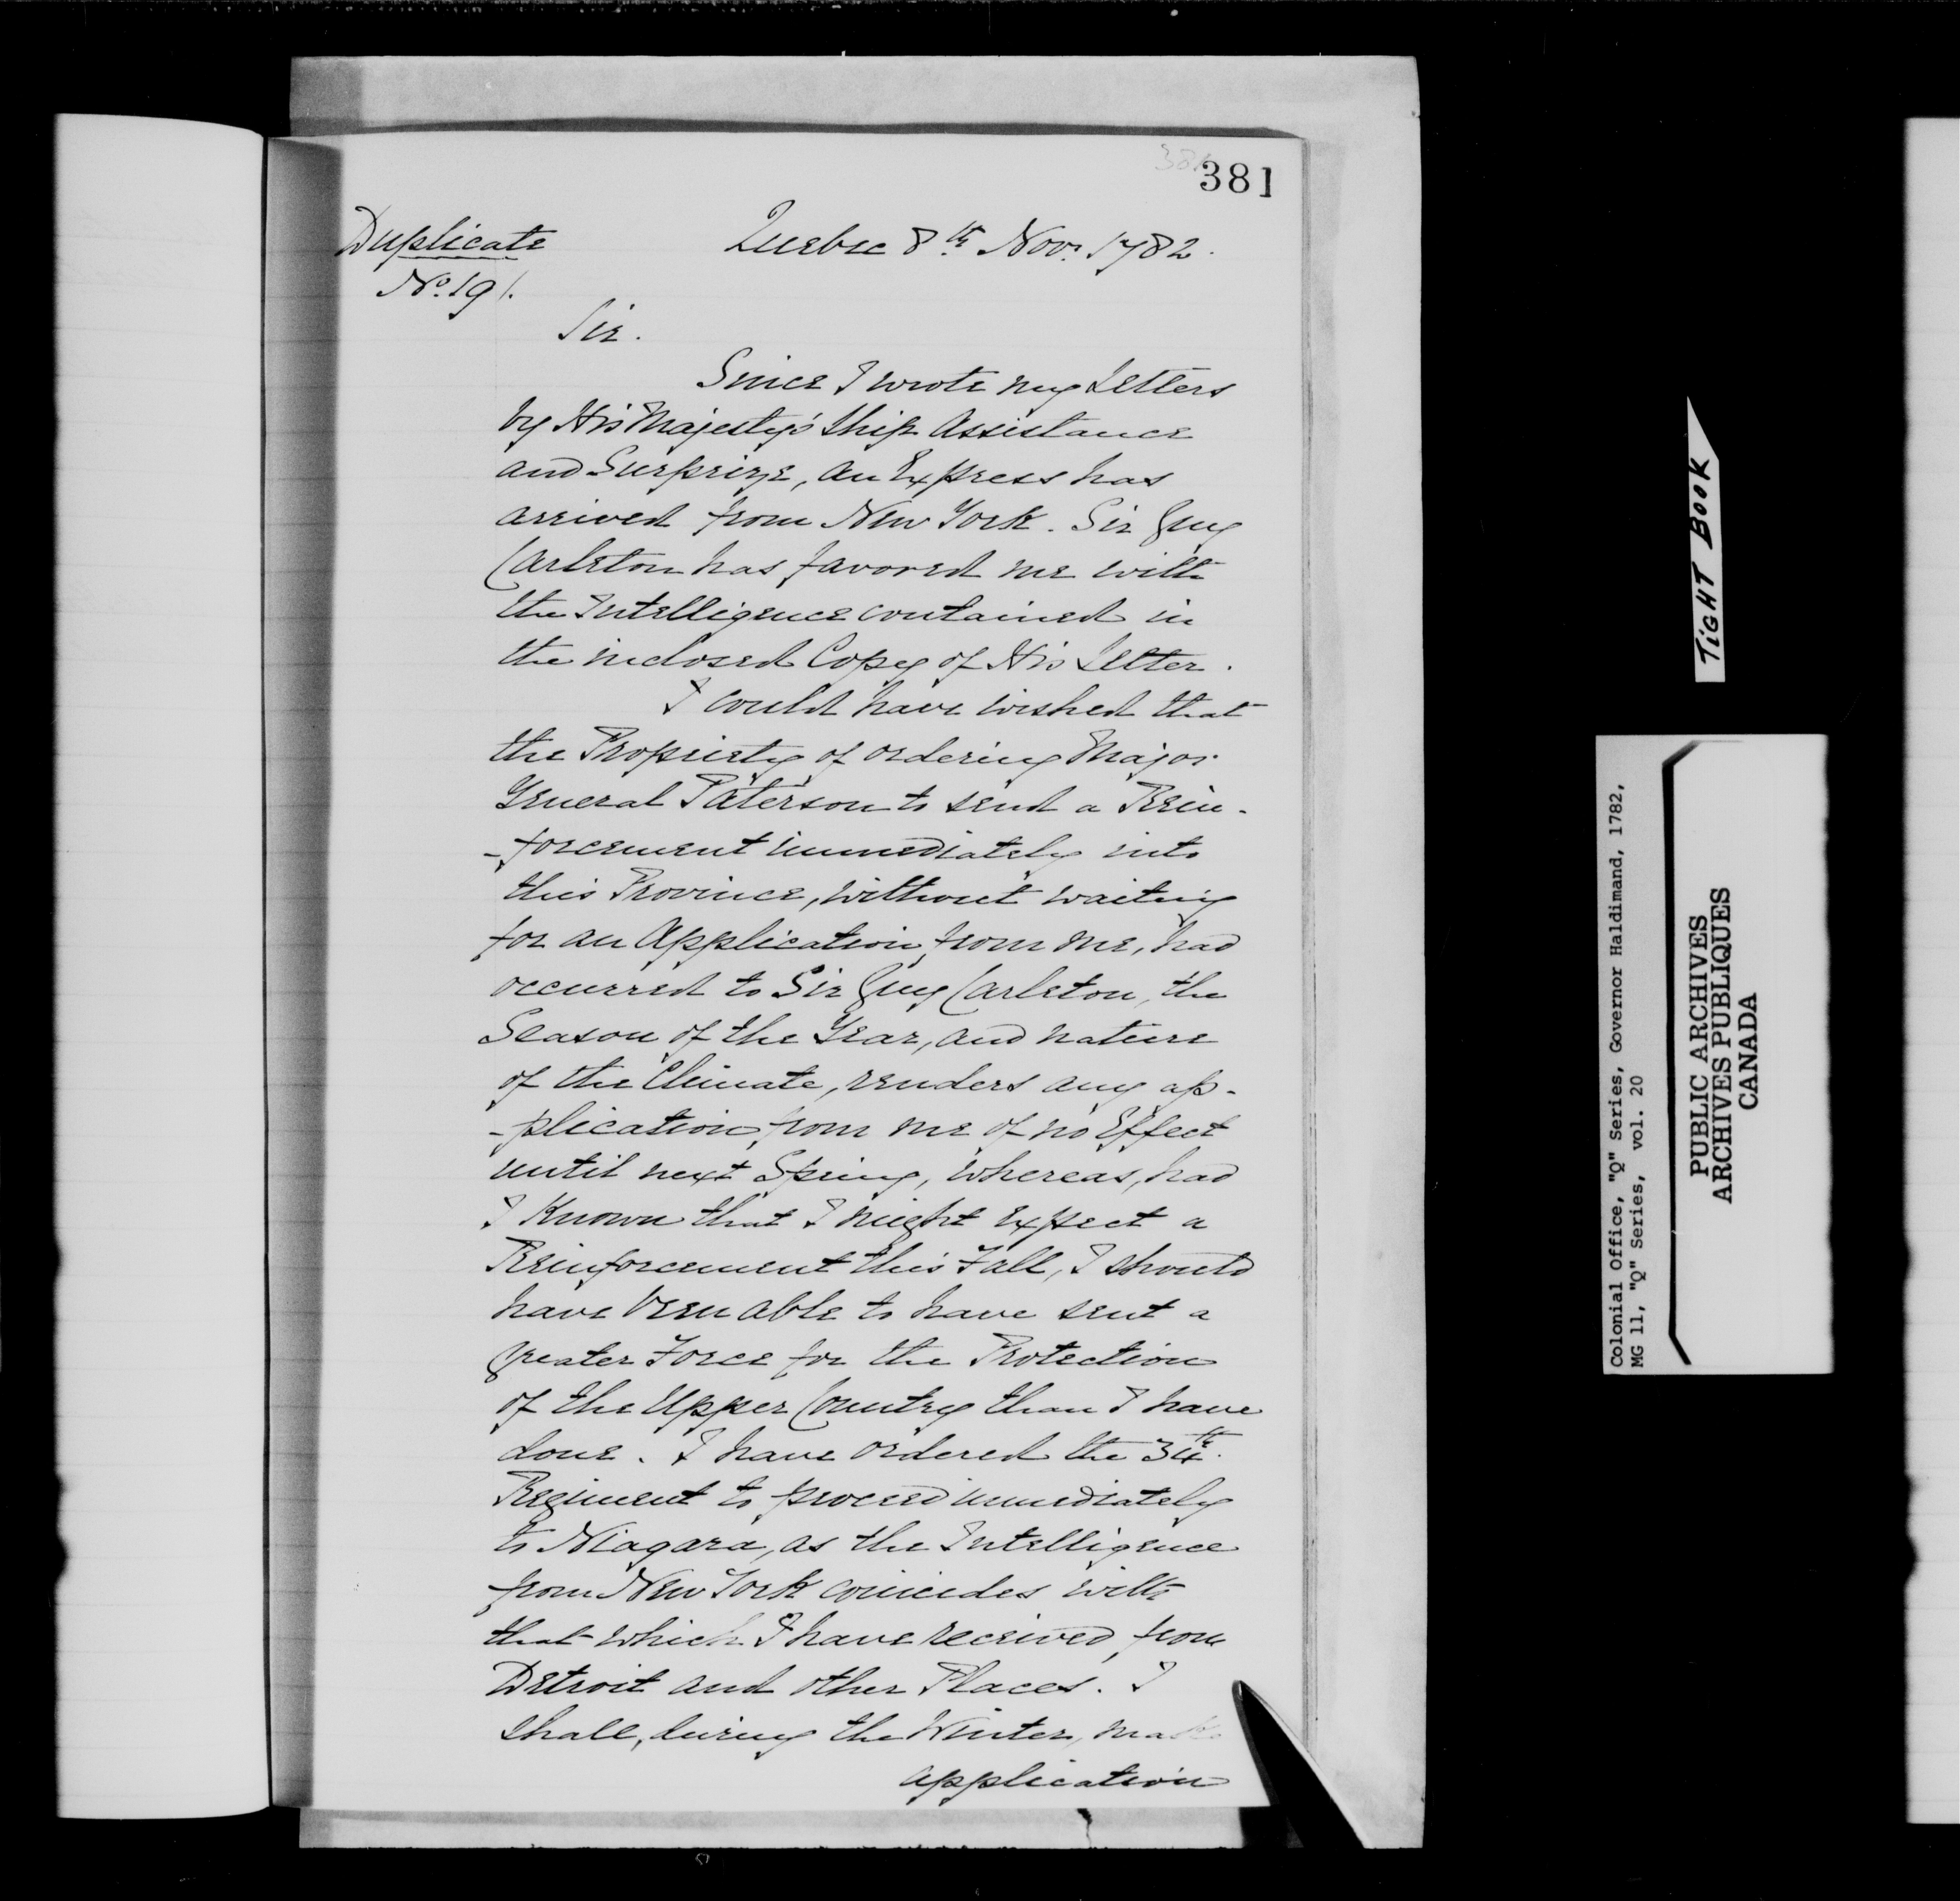 381
381
Duplicate
Quebec 8th Novr. 1782.
No. 191.
Sir.
Since I wrote my Letters
by His Majesty's Ship Assistance
and Surprize, an Express has
arrived from New York. Sir Guy
Carleton has favored me with
the Intelligence contained in
the inclosed Copy of His Letter.
I could have wished that
the Propriety of ordering Major
General Paterson to send a Rein-
-forcement immediately into
this Province, without waiting
for an Application from me, had
occurred to Sir Guy Carleton, the
Season of the Year, and nature
of the Climate, renders any ap-
-plication from me of no Effect
until next Spring, whereas, had
I Known that I might expect a
Reinforcement this Fall, I should
have been able to have sent a
greater Force for the Protection
of the Upper Country than I have
done. I have ordered the 34th.
Regiment to proceed immediately
to Niagara, as the Intelligence
from New York coincides with
that which I have received from
Detroit and other Places. I
shall, during the Winter, make
application
TIGHT BOOK
Colonial Office, "Q" Series, Governor Haldimand, 1782,
MG 11, "Q" Series, vol. 20
PUBLIC ARCHIVES
ARCHIVES PUBLIQUES
CANADA